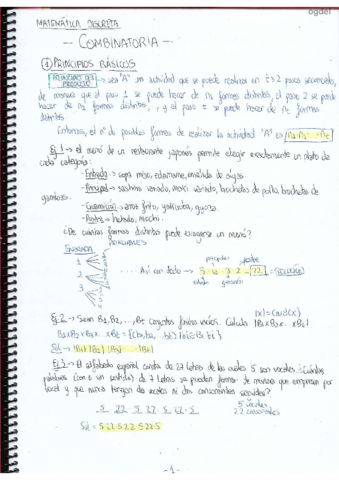 MATEMÁTICA DISCRETA
- COMBINATORIA -
① PRINCIPIOS BÁSICOS
PRINCIPIO DEL PRODUCTO → Sea "A" una actividad que se puede realizar en t≥2 pasos sucesivos,
de manera que el paso 1 se puede hacer de n₁ formas distintas, el paso 2 se puede
hacer de n₂ formas distintas, y el paso t se puede hacer de nt formas
distintas
Entonces, el nº de posibles formas de realizar la actividad "A" es n₁·n₂· ··· nt
Ej 1 → el menú de un restaurante japonés permite elegir exactamente un plato de
cada categoría:
- Entrada → sopa miso, edamame, ensalada de algas.
- Principal → sashimi variado, maki variado, brochetas de pollo, brochetas de
gambas.
- Guarnición → arroz frito, yakisoba, gyoza.
- Postre → helado, mochi.
¿De cuántas formas distintas puede escogerse un menú?
ENTRADA
PRINCIPALES
1
2
3
Así con todo →
principales
postre
= SOLUCIÓN
guarnición
|X| = Card(X)
Ej 2 → Sean B₁, B₂, ..., Bt conjuntos finitos vacíos. Calcula |B₁xB₂x...xBt|
B₁xB₂xB₃x...xBt = {(b₁, b₂, ... bt) | bi ∈ Bi ∀i}
Sol → |B₁| |B₂| |B₃| ... |Bt|
Ej 3 → El alfabeto español consta de 27 letras de las cuales 5 son vocales. ¿Cuántas
palabras (con o sin sentido) de 7 letras se pueden formar de manera que empiecen por
vocal y que nunca tengan dos vocales ni dos consonantes seguidas?
5 22 5 22 5 22 5
5 vocales
22 consonantes
Sol = 5·22·5·22·5·22·5
- 1 -